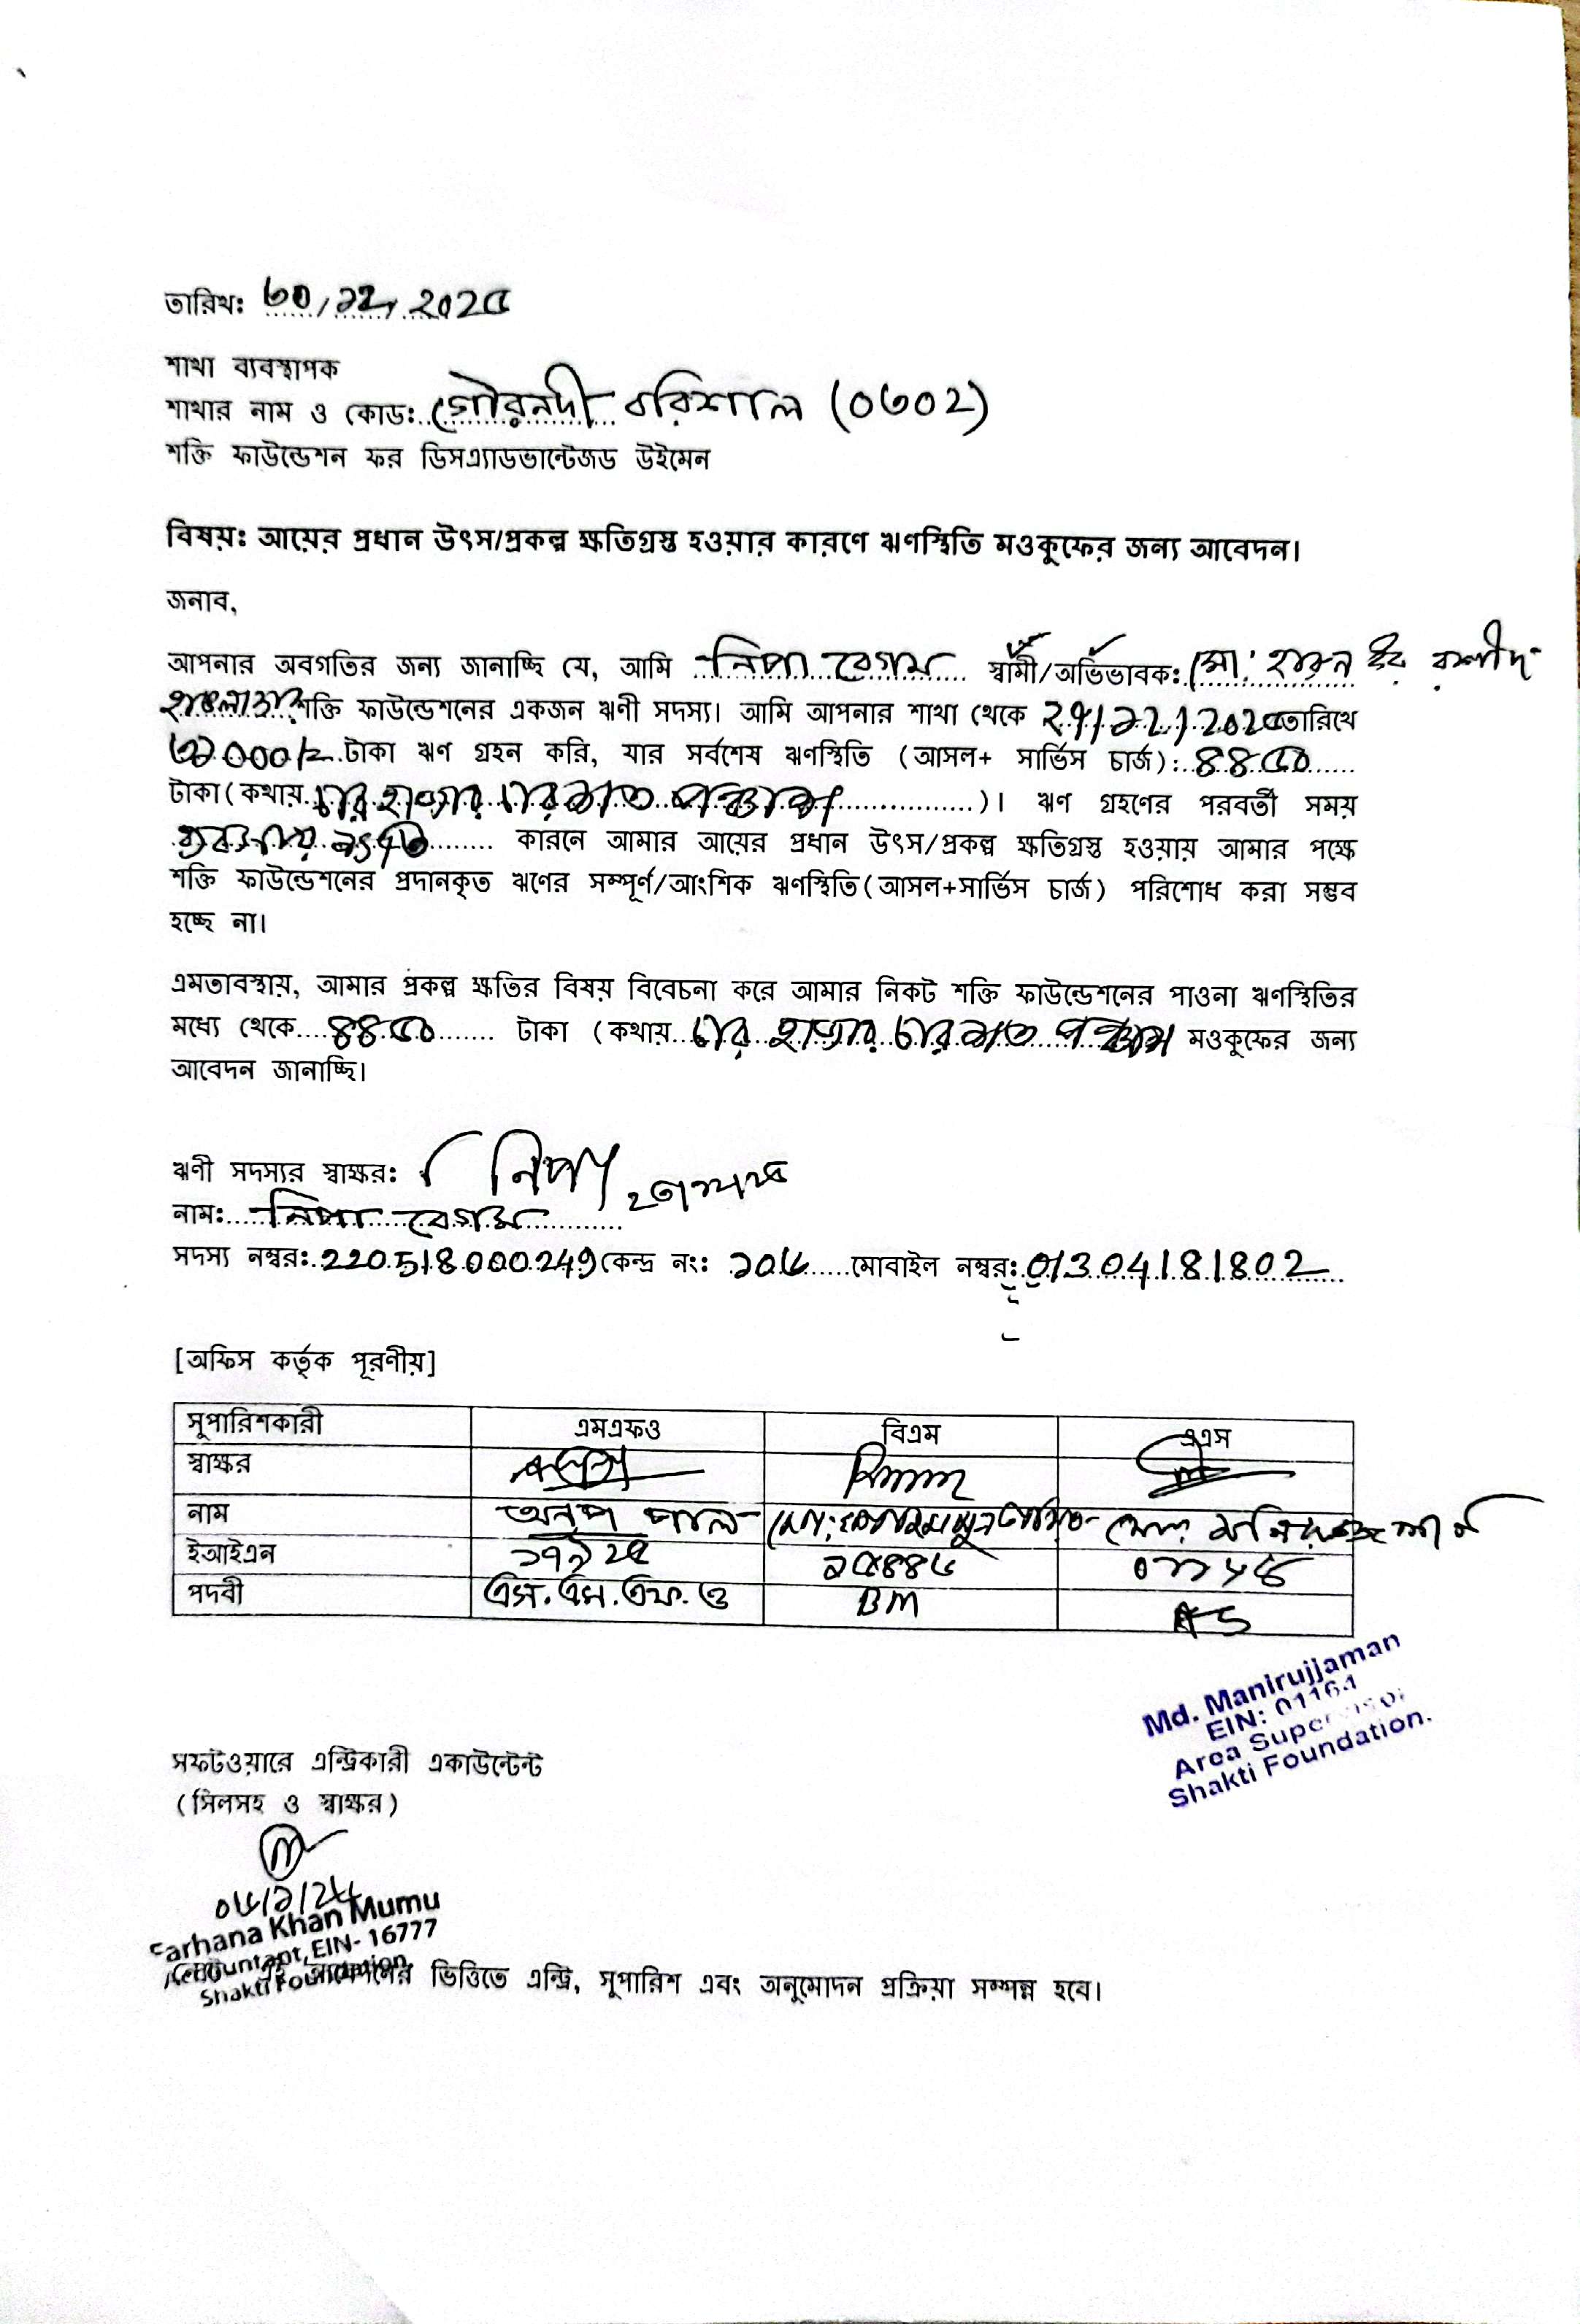 তারিখ: ৩০/১২/২০২৫
শাখা ব্যবস্থাপক
শাখার নাম ও কোড: গৌরনদী বরিশাল (০৩০২)
শক্তি ফাউন্ডেশন ফর ডিসএ্যাডভান্টেজড উইমেন
বিষয়: আয়ের প্রধান উৎস/প্রকল্প ক্ষতিগ্রস্ত হওয়ার কারণে ঋণস্থিতি মওকুফের জন্য আবেদন।
জনাব,
আপনার অবগতির জন্য জানাচ্ছি যে, আমি নিপা বেগম স্বামী/অভিভাবক: মো: হারুন অর রশীদ
শক্তি ফাউন্ডেশনের একজন ঋণী সদস্য। আমি আপনার শাখা থেকে তারিখে
টাকা ঋণ গ্রহন করি, যার সর্বশেষ ঋণস্থিতি (আসল+ সার্ভিস চার্জ): ৪৪৫০
টাকা(কথায় চার হাজার চারশত পঞ্চাশ)। ঋণ গ্রহণের পরবর্তী সময়
ব্যবসায় ক্ষতি কারনে আমার আয়ের প্রধান উৎস/প্রকল্প ক্ষতিগ্রস্ত হওয়ায় আমার পক্ষে
শক্তি ফাউন্ডেশনের প্রদানকৃত ঋণের সম্পূর্ণ/আংশিক ঋণস্থিতি(আসল+সার্ভিস চার্জ) পরিশোধ করা সম্ভব
হচ্ছে না।
এমতাবস্থায়, আমার প্রকল্প ক্ষতির বিষয় বিবেচনা করে আমার নিকট শক্তি ফাউন্ডেশনের পাওনা ঋণস্থিতির
মধ্যে থেকে ৪৪৫০ টাকা (কথায় চার হাজার চারশত পঞ্চাশ মওকুফের জন্য
আবেদন জানাচ্ছি।
ঋণী সদস্যর স্বাক্ষর: নিপা
নাম: নিপা বেগম
সদস্য নম্বর: 220518000249 কেন্দ্র নং: ১০৬ মোবাইল নম্বর: 01304181802
[অফিস কর্তৃক পূরণীয়]
সুপারিশকারী এমএফও বিএম এএস
স্বাক্ষর
নাম অনুপ পাল
ইআইএন ১৭৯২৫ ১৫৪৪৬
পদবী এস.এম.এফ.ও BM AS
Md. Manirujjaman
EIN: 01164
Area Supervisor
Shakti Foundation.
সফটওয়ারে এন্ট্রিকারী একাউন্টেন্ট
(সিলসহ ও স্বাক্ষর)
০৬/১/২৬
Farhana Khan Mumu
Accountant, EIN- 16777
Shakti Foundation
ভিত্তিতে এন্ট্রি, সুপারিশ এবং অনুমোদন প্রক্রিয়া সম্পন্ন হবে।